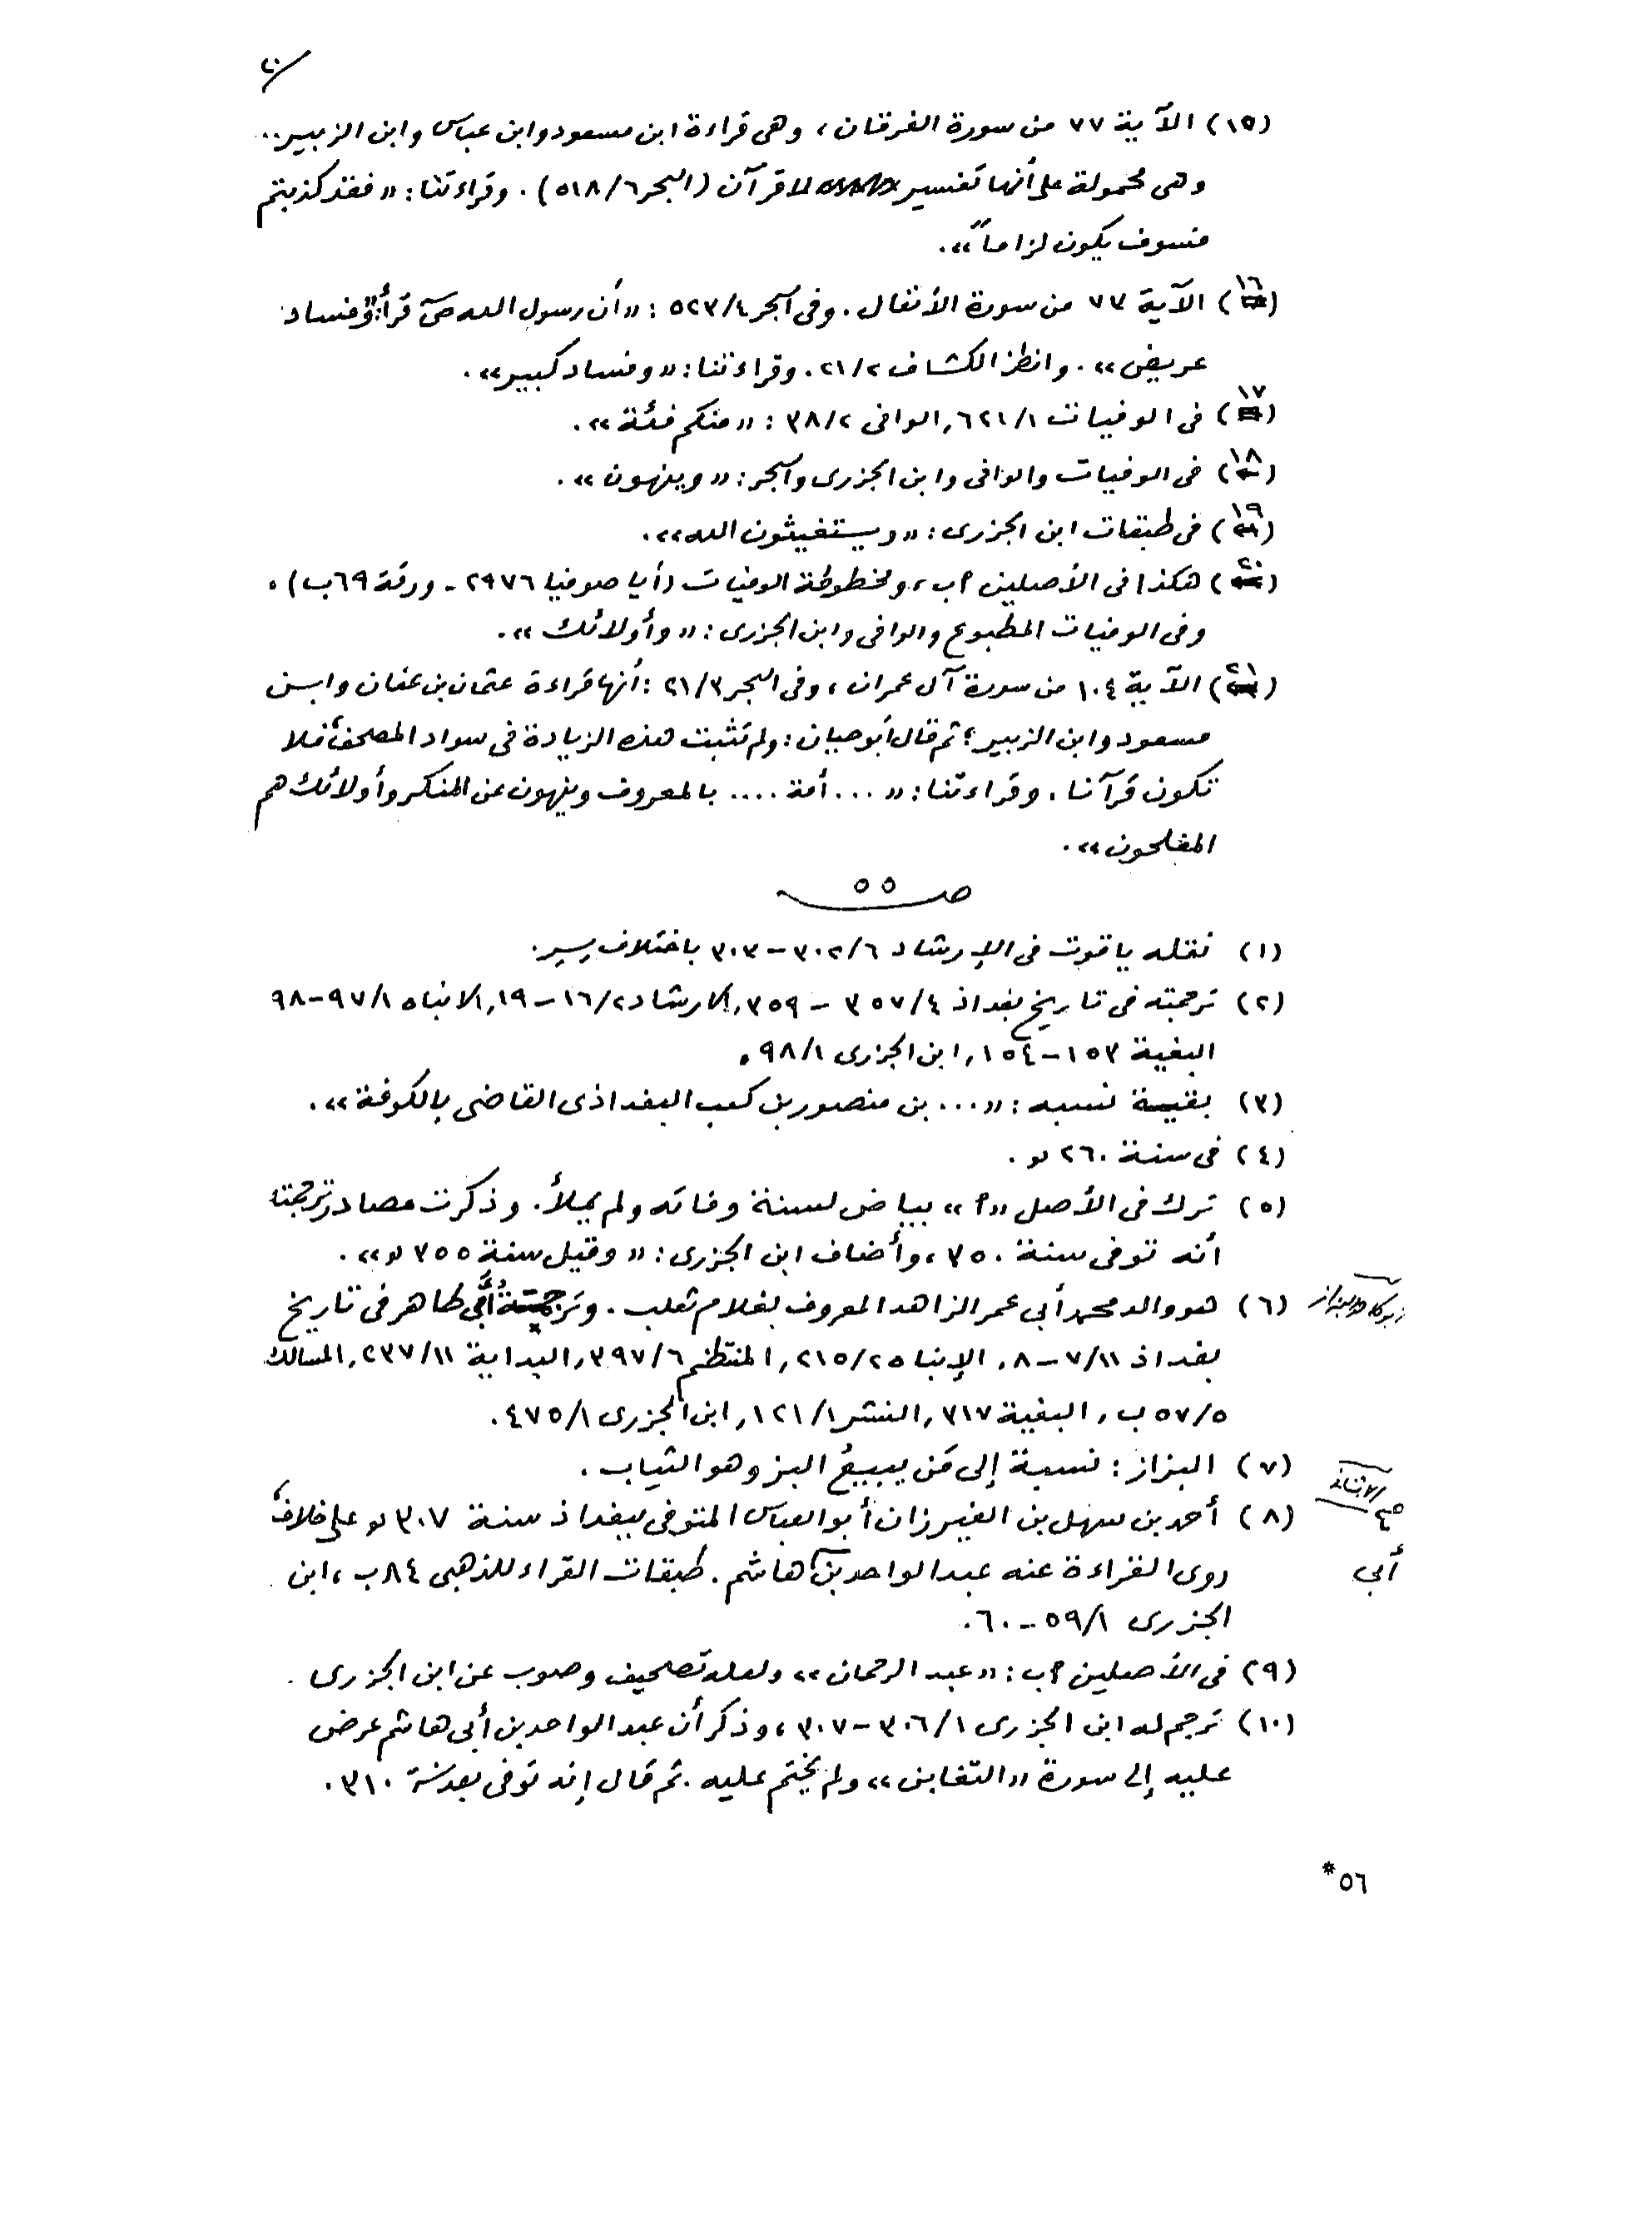 ٢٠
(١٥) الآية ٧٧ من سورة الفرقان، وهى قراءة ابن مسعود وابن عباس وابن الزبير..
وهى محمولة على أنها تفسير لا قرآن (البحر ٥١٨/٦). وقراءتنا: «فقد كذبتم
فسوف يكون لزاماً».
(١٦) الآية ٧٣ من سورة الأنفال. وفى البحر ٥٢٣/٤: «أن رسول الله ص قرأ: وفساد
عريض». وانظر الكشاف ٢١/٢. وقراءتنا: «وفساد كبير».
(١٧) فى الوفيات ٦٢١/١, الوافى ٣٨/٢: «منكم فئة».
(١٨) فى الوفيات والوافى وابن الجزرى والبحر: «وينهون».
(١٩) فى طبقات ابن الجزرى: «ويستغيثون الله».
(٢٠) هكذا فى الأصلين ٢ب، ومخطوطة الوفيات (أيا صوفيا ٢٩٧٦ - ورقة ٦٩ب).
وفى الوفيات المطبوع والوافى وابن الجزرى: «وأولائك».
(٢١) الآية ١٠٤ من سورة آل عمران، وفى البحر ٢١/٣: أنها قراءة عثمان بن عفان وابن
مسعود وابن الزبير؛ ثم قال أبو حيان: ولم تثبت هذه الزيادة فى سواد المصحف، فلا
تكون قرآنا. وقراءتنا: «... أمة .... بالمعروف وينهون عن المنكر وأولائك هم
المفلحون».
صـ ٥٥
(١) نقله ياقوت فى الإرشاد ٣٠٢/٦ - ٣٠٣ باختلاف يسير.
(٢) ترجمته فى تاريخ بغداذ ٣٥٧/٤ - ٣٥٩, الارشاد ١٦/٢ - ١٩, الانباه ٩٧/١ - ٩٨
البغية ١٥٣ - ١٥٤, ابن الجزرى ٩٨/١.
(٣) بقية نسبه: «... بن منصور بن كعب البغداذى القاضى بالكوفة».
(٤) فى سنة ٢٦٠ هـ.
(٥) ترك فى الأصل «٢» بياض لسنة وفاته ولم يملأ. وذكرت مصادر ترجمته
أنه توفى سنة ٣٥٠، وأضاف ابن الجزرى: «وقيل سنة ٣٥٥ هـ».
(٦) هو والد محمد أبى عمر الزاهد المعروف بغلام ثعلب. وترجمة أبى طاهر فى تاريخ
بغداذ ٧/١١ - ٨, الإنباه ٢١٥/٢, المنتظم ٣٩٧/٦, البداية ٢٣٧/١١, المسالك
٥٧/٥ ب, البغية ٣١٧, النشر ١٢١/١, ابن الجزرى ٤٧٥/١.
(٧) البزاز: نسبة إلى مَن يبيعُ البز وهو الثياب.
(٨) أحمد بن سهل بن الفيرزان أبو العباس المتوفى ببغداذ سنة ٣٠٧ هـ على خلاف،
روى القراءة عنه عبد الواحد بن هاشم. طبقات القراء للذهبى ٨٤ب، ابن
أبى
الجزرى ٥٩/١ - ٦٠.
(٩) فى الأصلين ٢ب: «عبد الرحمان» ولعله تصحيف وصوب عن ابن الجزرى.
(١٠) ترجم له ابن الجزرى ٣٠٦/١ - ٣٠٧، وذكر أن عبد الواحد بن أبى هاشم عرض
عليه إلى سورة «التغابن» ولم يختم عليه. ثم قال إنه توفى بعد سنة ٣١٠.
٥٦*